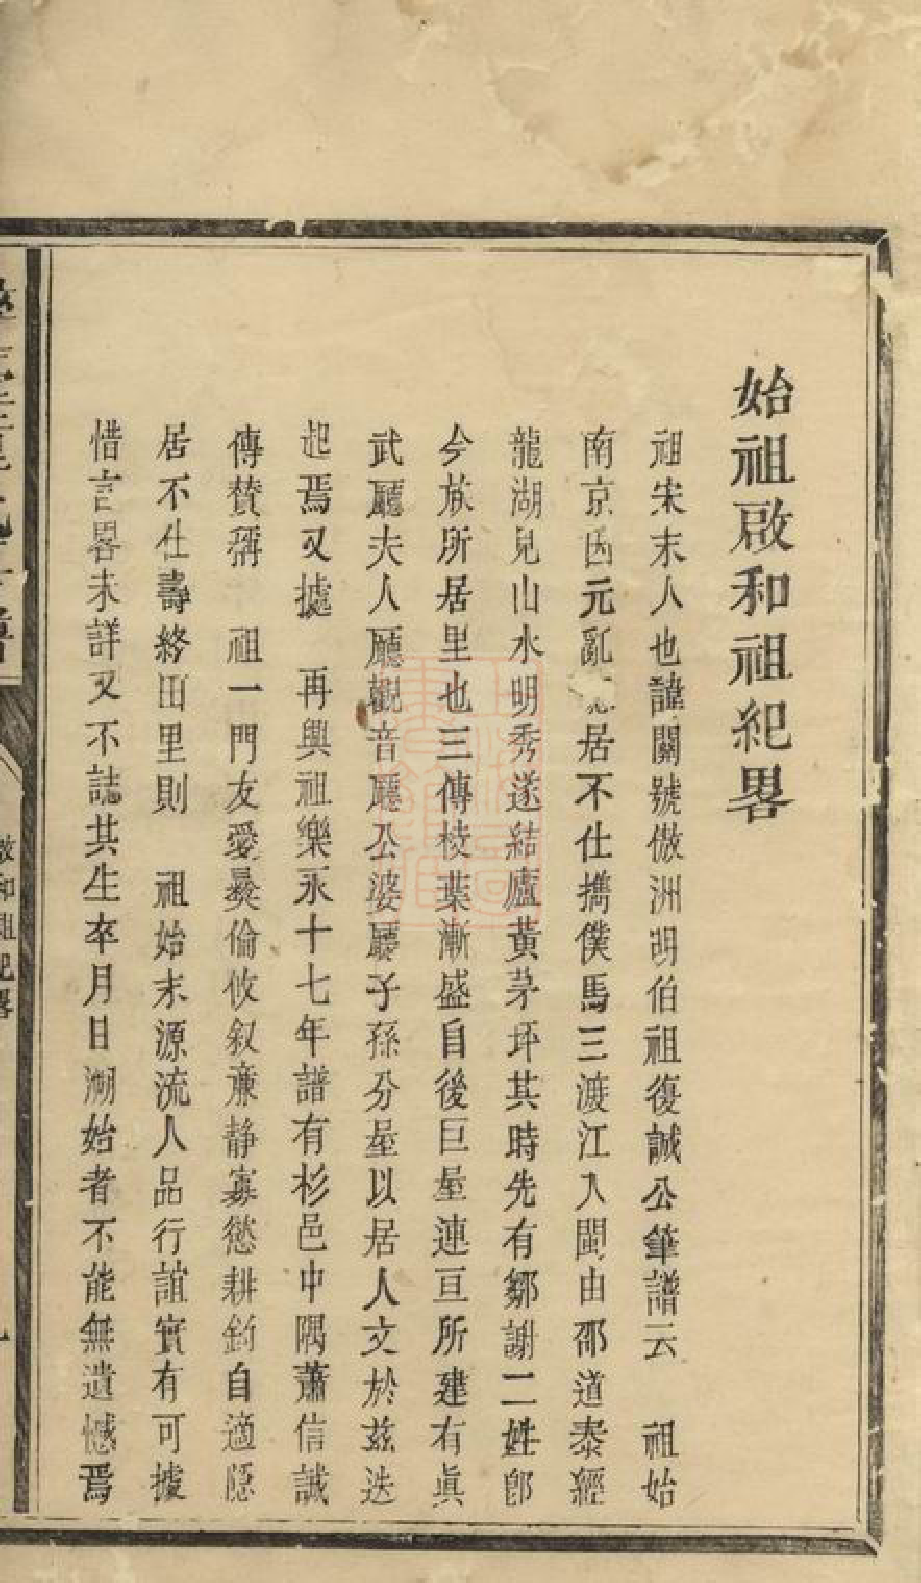 始祖啟和祖紀畧
祖宋末人也諱關號倣洲明伯祖復誠公筆譜云　祖始
南京因元亂居不仕攜僕馬三渡江入閩由邵道泰經
龍湖見山水明秀遂結廬黃茅坪其時先有鄒謝二姓卽
今族所居里也三傳枝葉漸盛自後巨屋連亘所建有眞
武廳夫人廳觀音廳公婆廳子孫分屋以居人文於茲迭
起焉又據　再興祖樂永十七年譜有杉邑中隅蕭信誠
傳贊稱　祖一門友愛彝倫攸叙亷静寡慾耕釣自適隱
居不仕壽終田里則　祖始末源流人品行誼實有可據
惜言畧未詳又不誌其生卒月日溯始者不能無遺憾焉
啟和祖紀畧